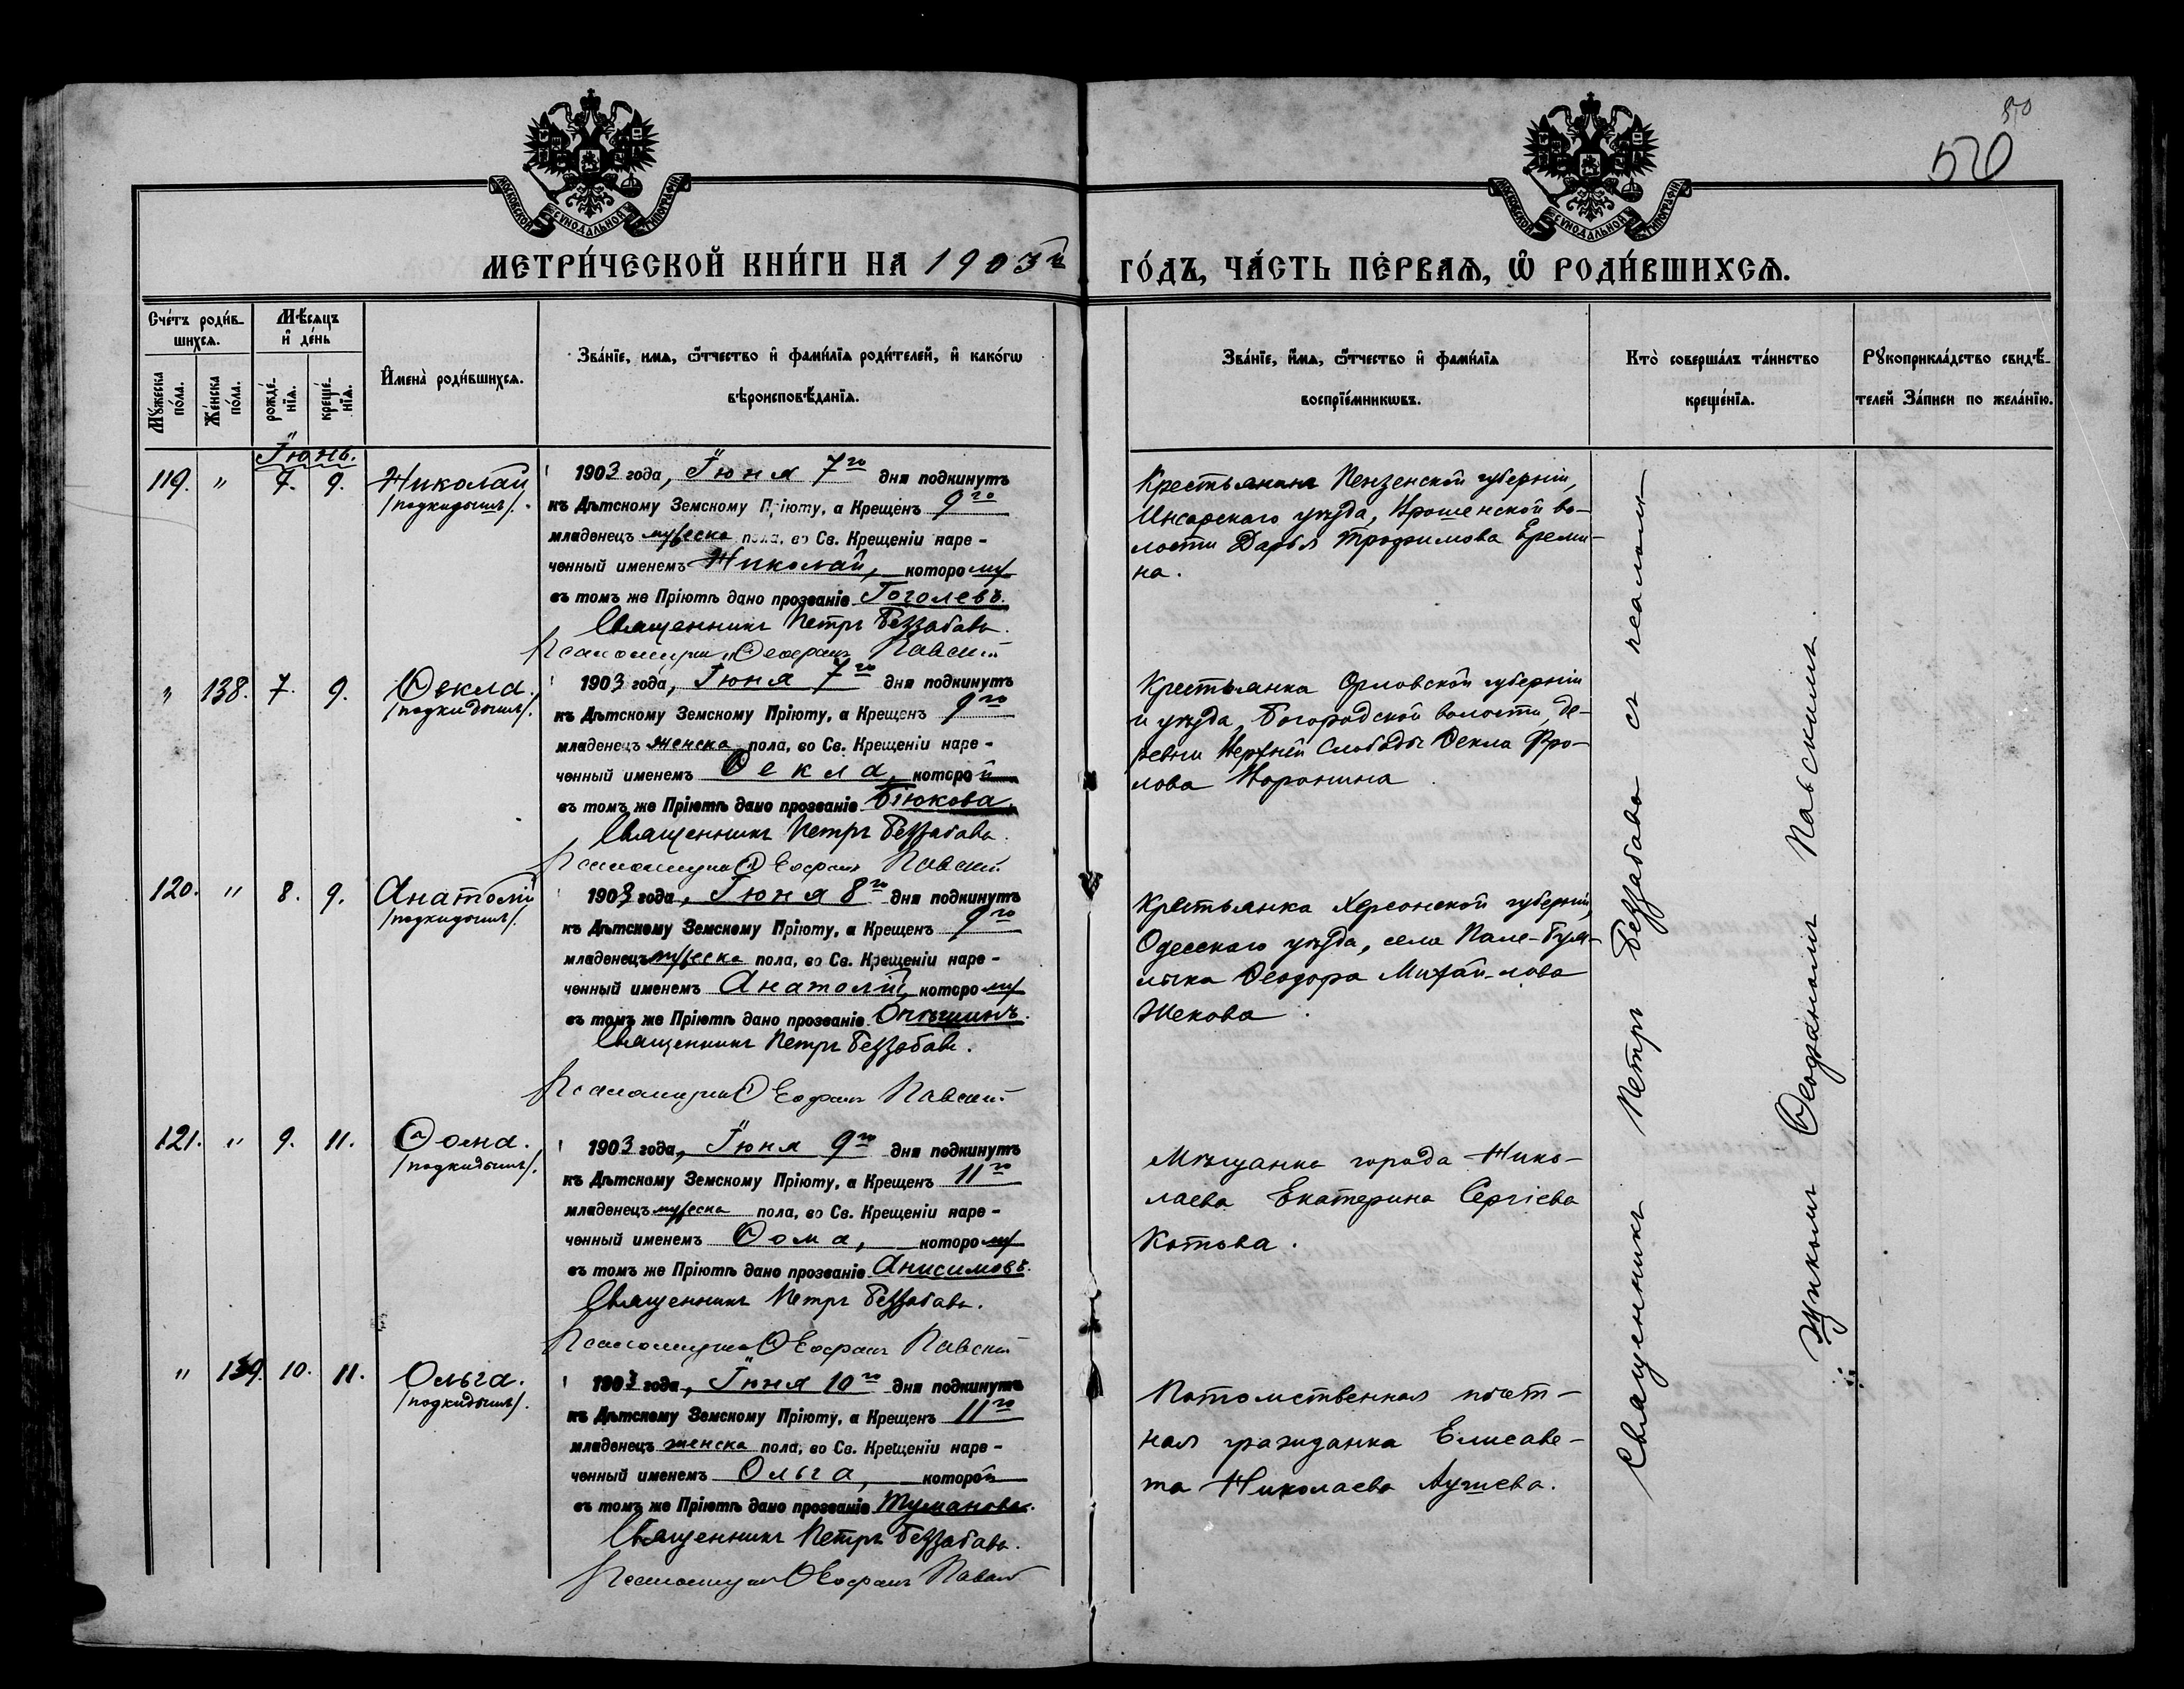 50
50
МОСКОВСКОЙ СѴНОДАЛЬНОЙ ТИПОГРАФІИ
МОСКОВСКОЙ СѴНОДАЛЬНОЙ ТИПОГРАФІИ
МЕТРИ́ЧЕСКОЙ КНИ́ГИ НА 1903й ГО́ДЪ, ЧА́СТЬ ПЕ́РВАѦ, Ѡ҆ РОДИ́ВШИХСѦ.
Счетъ роди́в-
шихсѧ.
Мѣ́сѧцъ
и҆ де́нь
Мꙋ́жеска по́ла.
Же́нска по́ла.
рожде́-
нїѧ.
креще́-
нїѧ.
И҆мена̀ роди́вшихсѧ.
Зва́нїе, имѧ, ѻ҆́тчество и҆ фами́лїѧ роди́телей, и҆ како́гѡ
вѣроисповѣ́данїѧ.
Зва́нїе, и҆́мѧ, ѻ҆́тчество и҆ фами́лїѧ
воспрїе́мникѡвъ.
Кто̀ соверша́лъ та́инство
креще́нїѧ.
Рꙋкоприкла́дство свидѣ́-
телей За́писи по жела́нїю.
Іюнь.
119. " 7. 9. Николай
/подкидышъ/.
1903 года, Іюня 7го дня подкинутъ
къ Дѣтскому Земскому Пріюту, а Крещенъ 9го
младенецъ мужеска пола, во Св. Крещеніи наре-
ченный именемъ Николай, которому
въ томъ же Пріютѣ дано прозваніе Гоголевъ.
Священникъ Петръ Беззабава.
Псаломщикъ Ѳеофанъ Павскій
Крестьянинъ Пензенской губерніи,
Инсарскаго уѣзда,
лости Дарья Трофимова Ереми-
на.
" 138. 7. 9. Ѳекла.
/подкидышъ/.
1903 года, Іюня 7го дня подкинутъ
къ Дѣтскому Земскому Пріюту, а Крещенъ 9го
младенецъ женска пола, во Св. Крещеніи наре-
ченный именемъ Ѳекла, которой
въ томъ же Пріютѣ дано прозваніе Бюкова.
Священникъ Петръ Беззабава.
Псаломщикъ Ѳеофанъ Павскій
Крестьянка Орловской губерніи
и уѣзда, Богородской волости, де-
ревни Верхней Слободы Ѳекла Фро-
лова Воронина
120. " 8. 9. Анатолій
/подкидышъ/.
1903 года, Іюня 8го дня подкинутъ
къ Дѣтскому Земскому Пріюту, а Крещенъ 9го
младенецъ мужеска пола, во Св. Крещеніи наре-
ченный именемъ Анатолій, которому
въ томъ же Пріютѣ дано прозваніе
Священникъ Петръ Беззабава.
Псаломщикъ Ѳеофанъ Павскій
Крестьянка Херсонской губерніи,
Одесскаго уѣзда, села
Ѳеодора Михай-лова
Жекова.
121. " 9. 11. Ѳома.
/подкидышъ/.
1903 года, Іюня 9го дня подкинутъ
къ Дѣтскому Земскому Пріюту, а Крещенъ 11го
младенецъ мужеска пола, во Св. Крещеніи наре-
ченный именемъ Ѳома, которому
въ томъ же Пріютѣ дано прозваніе Анисимовъ.
Священникъ Петръ Беззабава.
Псаломщикъ Ѳеофанъ Павскій
Мѣщанка города Нико-
лаева Екатерина Сергіева
Котова.
" 139. 10. 11. Ольга.
/подкидышъ/.
1903 года, Іюня 10го дня подкинутъ
къ Дѣтскому Земскому Пріюту, а Крещенъ 11го
младенецъ женска пола, во Св. Крещеніи наре-
ченный именемъ Ольга, которой
въ томъ же Пріютѣ дано прозваніе Туманова.
Священникъ Петръ Беззабава.
Псаломщикъ Ѳеофанъ Павскій
Потомственная почет-
ная гражданка Елисаве-
та Николаева
Священникъ Петръ Беззабава съ псалом-
щикомъ Ѳеофаномъ Павскимъ.